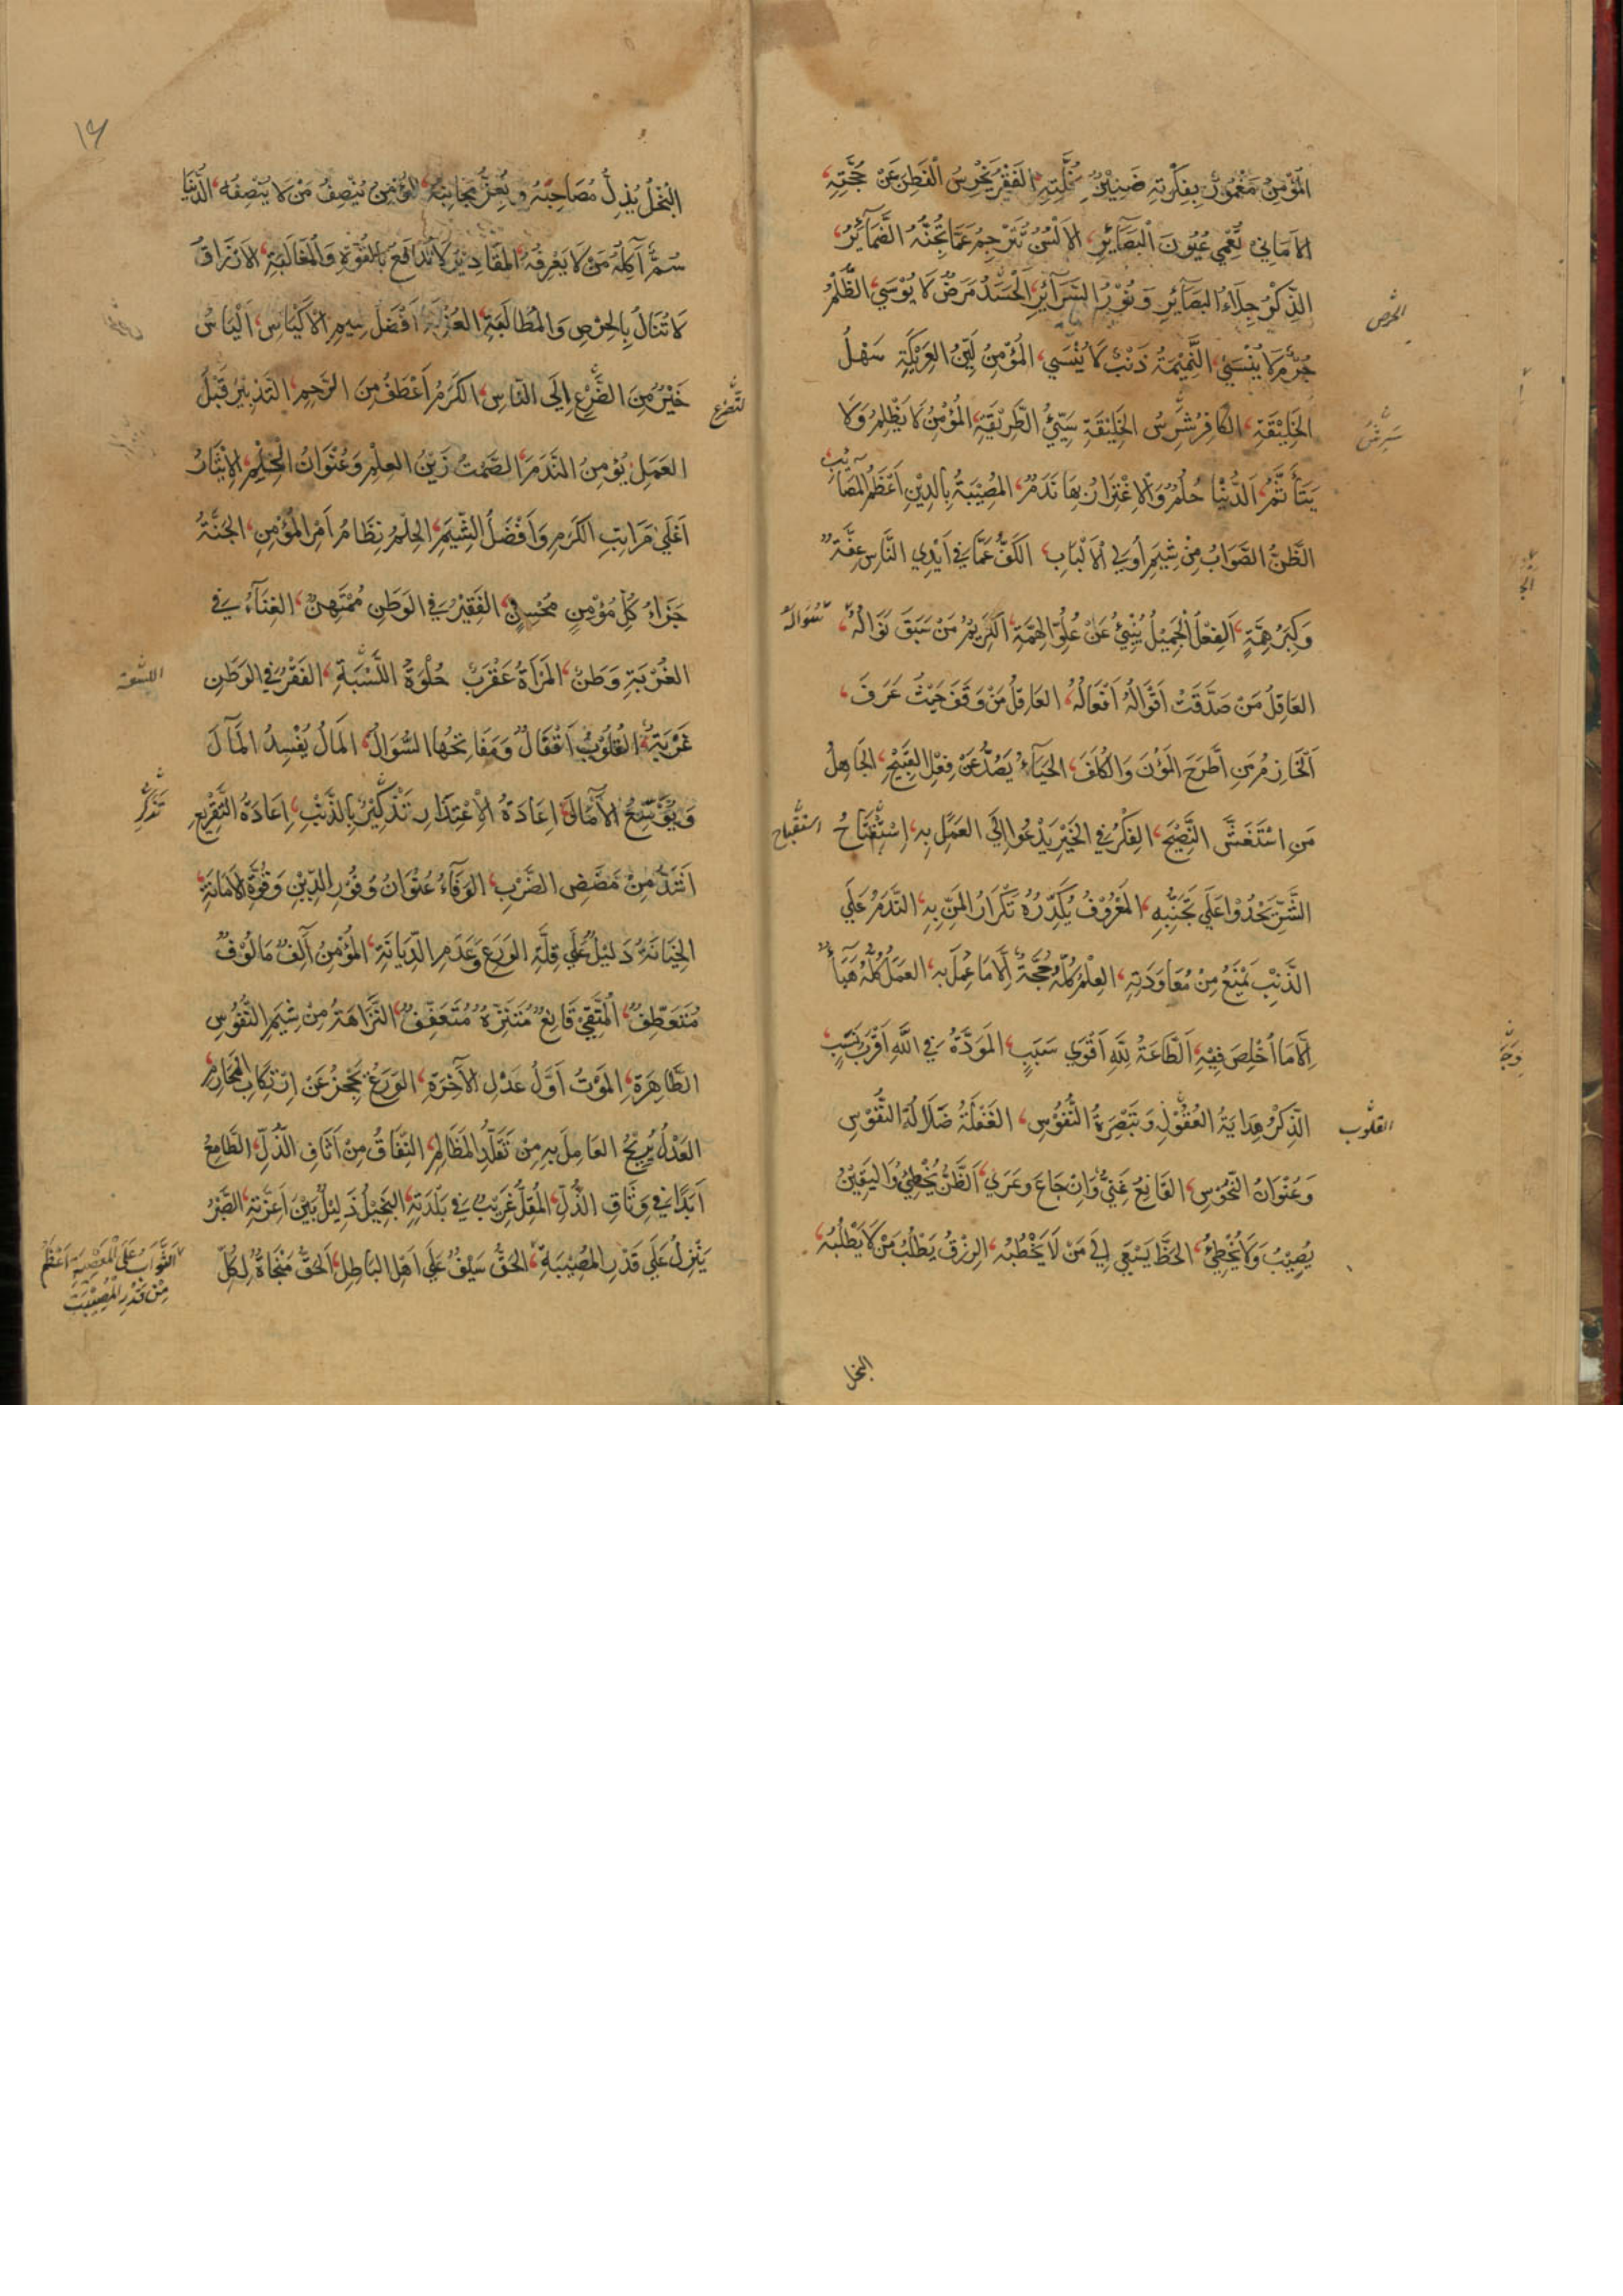 الْمُؤْمِنُ مَغْمُورٌ بِفِكْرَتِهِ ضَنِيْنٌ بِخُلَّتِهِ، الفَقْرُ يُخْرِسُ الْفَطِنَ عَنْ حُجَّتِهِ،
الاَمَانِي تُعْمِي عُيُونَ الْبَصَآئِرِ، الاَلْسُنُ تُتَرْجِمُ عَمَّا تُجِنُّهُ الضَّمَآئِرُ،
الذِّكْرُ جِلَاءُ البَصَآئِرِ وَنُوْرُ السَّرَآئِرِ، الْحَسَدُ مَرَضٌ لَا يُوْسَي، الظُّلْمُ
الحرص
جُرْمٌ لَا يُنْسَيٰ، النَّمِيْمَةُ ذَنْبٌ لَا يُنْسَي، الْمُؤْمِنُ لَيِّنُ العَرِيْكَةِ سَهْلُ
الخَلِيْقَةِ، الكَافِرُ شَرِسُ الخَلِيْقَةِ سَيِّئُ الطَّرِيْقَةِ، الْمُؤْمِنُ لَا يَظْلِمُ وَلَا
يَتَأَثَّمُ، اَلدُّنْيَا حُلُمٌ وَالْاِغْتِرَارُ بِهَا نَدَمٌ، المُصِيْبَةُ بِالدِّيْنِ اَعْظَمُ المَصَآئِبِ
الظَّنُّ الصَّوَابُ مِنْ شِيَمِ اُولِي الْاَلْبَابِ، الكَفُّ عَمَّا فِي اَيْدِي النَّاسِ عِفَّةٌ
وَكِبَرُ هِمَّةٍ، اَلفِعْلُ الْجَمِيْلُ يُنْبِئُ عَنْ عُلُوِّ الهِمَّةِ، اَلكَرِيْمُ مَنْ سَبَقَ نَوَالُهُ، سُؤَالَهُ
العَاقِلُ مَنْ صَدَّقَتْ اَقْوَالَهُ اَفْعَالُهُ، العَاقِلُ مَنْ وَقَفَ حَيْثُ عَرَفَ،
اَلْحَازِمُ مَنِ اطَّرَحَ المُؤَنَ وَالكُلَفَ، الحَيَآءُ يَصُدُّ عَنْ فِعْلِ القَبِيْحِ، الجَاهِلُ
مَنِ اسْتَغَشَّ النَّصِيْحَ، الفِكْرُ فِي الخَيْرِ يَدْعُوا اِلَي العَمَلِ بِهِ، اِسْتِفْتَاحُ استقباح
الشَّرِّ يَحْدُوْا عَلَي تَجَنُّبِهِ، المَعْرُوْفُ يُكَدِّرُهُ تَكْرَارُ المَنِّ بِهِ، النَّدَمُ عَلَي
الذَّنْبِ يَمْنَعُ مِنْ مُعَاوَدَتِهِ، العِلْمُ كُلُّهُ حُجَّةٌ اِلَّا مَا عُمِلَ بِهِ، العَمَلُ كُلُّهُ هَبَآءٌ
اِلَّا مَا اُخْلِصَ فِيْهِ، اَلطَّاعَةُ لِلّٰهِ اَقْوَي سَبَبٍ، المَوَدَّةُ فِي اللّٰهِ اَقْرَبُ نَسَبٍ
الذِّكْرُ هِدَايَةُ العُقُوْلِ وَتَبْصِرَةُ النُّفُوْسِ، الغَفْلَةُ ضَلَالَةُ النُّفُوْسِ
القلوب
وَعُنْوَانُ النُّحُوْسِ، القَانِعُ غَنِيٌّ وَاِنْ جَاعَ وَعَرِيَ، اَلظَّنُّ يُخْطِئُ وَاليَقِيْنُ
يُصِيْبُ وَلَا يُخْطِئُ، الحَظُّ يَسْعَي اِلَي مَنْ لَا يَخْطُبُهُ، الرِزْقُ يَطْلُبُ مَنْ لَا يَطْلُبُهُ،
البخل
١٤
البُخْلُ يُذِلُّ مُصَاحِبَهُ وَيُعِزُّ مُجَانِبَهُ، المُؤْمِنُ يُنْصِفُ مَنْ لَا يُنْصِفُهُ، الدُّنْيَا
سُمٌّ آكِلُهُ مَنْ لَا يَعْرِفُهُ، المَقَادِيْرُ لَا تُدَافَعُ بِالقُوَّةِ وَالْمُغَالَبَةِ، الاَرْزَاقُ
لَا تُنَالُ بِالحِرْصِ وَالمُطَالَبَةِ، العُزْلَةُ اَفْضَلُ شِيَمِ الْاَكْيَاسِ، اَلْيَاْسُ
خَيْرٌ مِنَ الضَّرْعِ اِلَي النَّاسِ، الكَرَمُ اَعْطَفُ مِنَ الرَّحِمِ، التَدْبِيْرُ قَبْلَ
التضرع
العَمَلِ يُؤْمِنُ النَّدَمَ، الصَّمْتُ زَيْنُ العِلْمِ وَعُنْوَانُ الْحِلْمِ، الْاِيْثَارُ
اَعْلَيٰ مَرَاتِبِ الكَرَمِ وَاَفْضَلُ الشِّيَمِ، الحِلْمُ نِظَامُ اَمْرِ الْمُؤْمِنِ، الجَنَّةُ
جَزَاءُ كُلِّ مُؤْمِنٍ مُحْسِنٍ، الفَقِيْرُ فِي الوَطَنِ مُمْتَهَنٌ، الغِنَآءُ فِي
الغُرْبَةِ وَطَنٌ، المَرْاَةُ عَقْرَبٌ حُلْوَةُ اللَّسْبَةِ، الفَقْرُ فِي الوَطَنِ
اللسعة
غُرْبَةٌ، القُلُوْبُ اَقْفَالٌ وَمَفَاتِحُهَا السُّوَالُ، المَالُ يُفْسِدُ المَآلَ
وَيُوَسِّعُ الْآمَالَ، اِعَادَةُ الْاِعْتِذَارِ تَذْكِيْرٌ بِالذَّنْبِ، اِعَادَةُ التَّقْرِيْعِ
تَذَكُّر
اَشَدُّ مِنْ مَضَضِ الضَّرْبِ، الوَفَآءُ عُنْوَانُ وُفُوْرِ الدِّيْنِ وَقُوَّةِ الْاَمَانَةِ،
الخِيَانَةُ دَلِيْلٌ عَلَي قِلَّةِ الوَرَعِ وَعَدَمِ الدِّيَانَةِ، المُؤْمِنُ آلِفٌ مَالُوْفٌ
مُتَعَطِّفٌ، اَلْمُتَّقِيْ قَانِعٌ مُتَنَزِّهٌ مُتَعَفِّفٌ، النَّزَاهَةُ مِنْ شِيَمِ النُّفُوْسِ
الطَّاهِرَةِ، المَوْتُ اَوَّلُ عَدْلِ الآخِرَةِ، الوَرَعُ يَحْجُزُ عَنْ اِرْتِكَابِ المَحَارِمِ
العَدْلُ يُرِيْحُ العَامِلَ بِهِ مِنْ تَقَلُّدِ المَظَالِمِ، النِّفَاقُ مِنْ اَثَافِ الذُّلِّ، الطَّامِعُ
اَبَدًا فِي وِثَاقِ الذُّلِّ، المُقِلُّ غَرِيْبٌ فِي بَلْدَتِهِ، البَخِيْلُ ذَلِيْلٌ بَيْنَ اَعِزَّتِهِ، الصَّبْرُ
يَنْزِلُ عَلَي قَدْرِ المُصِيْبَةِ، الحَقُّ سَيْفٌ عَلَي اَهْلِ البَاطِلِ، اَلحَقُّ مَنْجَاةٌ لِكُلِّ
الثَّوَابُ عَلَي المُصِيْبَةِ اَعْظَمُ
مِنْ قَدْرِ الْمُصِيْبَتِ